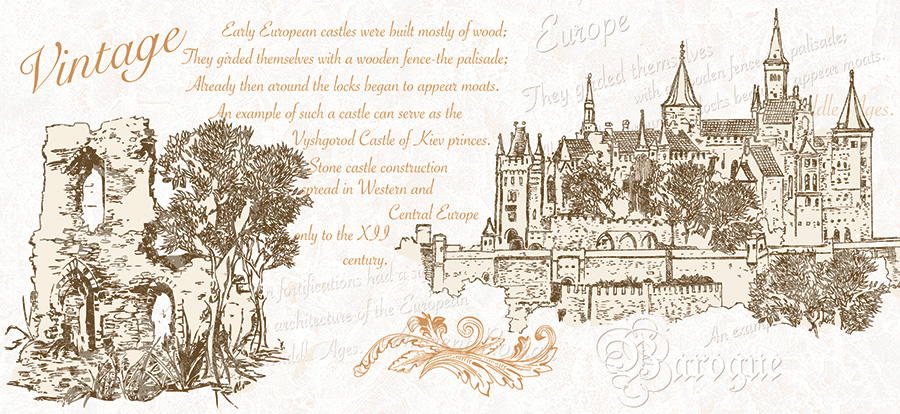 Vintage
Early European castles were built mostly of wood;
They girded themselves with a wooden fence-the palisade;
Already then around the locks began to appear moats.
An example of such a castle can serve as the
Vyshgorod Castle of Kiev princes.
Stone castle construction
spread in Western and
Central Europe
only to the XII
century.
Europe
They girded themselves
with a wooden fence-the palisade;
locks began to appear moats.
ddle Ages.
n fortifications had a s
architecture of the European
ddle Ages.
An examp
Baroque